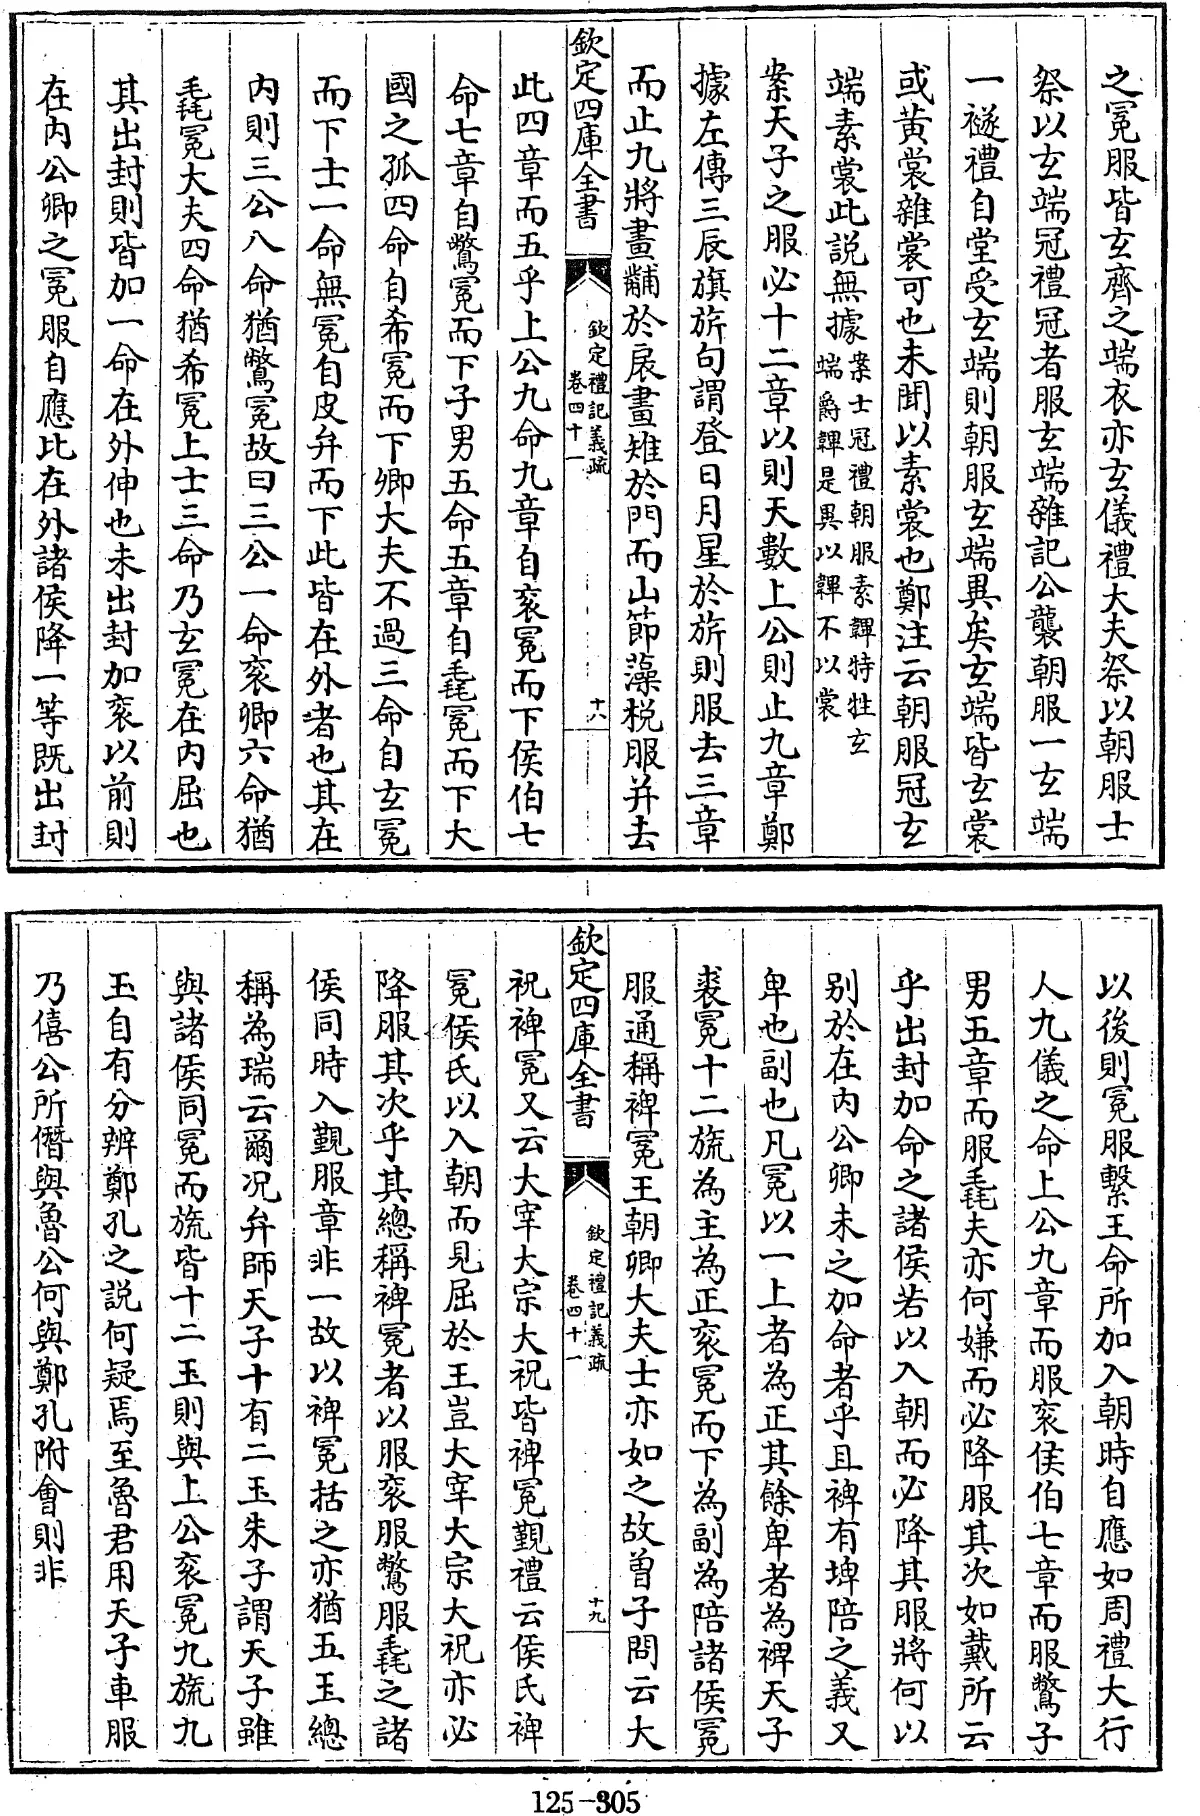 之冕服皆玄齊之端衣亦玄儀禮大夫祭以朝服士
祭以玄端冠禮冠者服玄端雜記公襲朝服一玄端
一襚禮自堂受玄端則朝服玄端異矣玄端皆玄裳
或黄裳雜裳可也未聞以素裳也鄭注云朝服冠玄
端素裳此説無據案士冠禮朝服素韠特牲玄
端爵韠是異以韠不以裳
案天子之服必十二章以則天數上公則止九章鄭
據左傳三辰旗旂句謂登日月星於旂則服去三章
而止九將畫黼於扆畫雉於門而山節藻梲服并去
欽定四庫全書
欽定禮記義疏
卷四十一
十八
此四章而五乎上公九命九章自衮冕而下侯伯七
命七章自鷩冕而下子男五命五章自毳冕而下大
國之孤四命自希冕而下卿大夫不過三命自玄冕
而下士一命無冕自皮弁而下此皆在外者也其在
内則三公八命猶鷩冕故曰三公一命衮卿六命猶
毳冕大夫四命猶希冕上士三命乃玄冕在内屈也
其出封則皆加一命在外伸也未出封加衮以前則
在内公卿之冕服自應比在外諸侯降一等既出封
以後則冕服繫王命所加入朝時自應如周禮大行
人九儀之命上公九章而服衮侯伯七章而服鷩子
男五章而服毳夫亦何嫌而必降服其次如戴所云
乎出封加命之諸侯若以入朝而必降其服將何以
别於在内公卿未之加命者乎且裨有埤陪之義又
卑也副也凡冕以一上者為正其餘卑者為裨天子
裘冕十二旒為主為正衮冕而下為副為陪諸侯冕
服通稱裨冕王朝卿大夫士亦如之故曽子問云大
欽定四庫全書
欽定禮記義疏
卷四十一
十九
祝裨冕又云大宰大宗大祝皆裨冕覲禮云侯氏裨
冕侯氏以入朝而見屈於王豈大宰大宗大祝亦必
降服其次乎其總稱裨冕者以服衮服鷩服毳之諸
侯同時入覲服章非一故以裨冕括之亦猶五玉總
稱為瑞云爾况弁師天子十有二玉朱子謂天子雖
與諸侯同冕而旒皆十二玉則與上公衮冕九旒九
玉自有分辨鄭孔之説何疑焉至魯君用天子車服
乃僖公所僭與魯公何與鄭孔附會則非
125-305